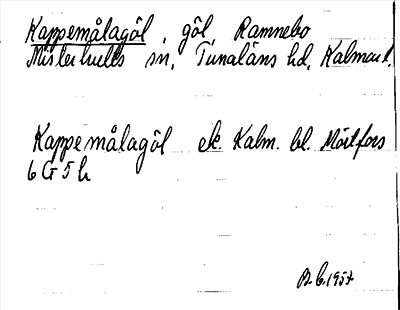 Kappemålagöl, göl, Ramnebo
Misterhults sn, Tunaläns hd, Kalmar l.
Kappemålagöl ek. Kalm. bl. Mörtfors
6 G 5 h
1957